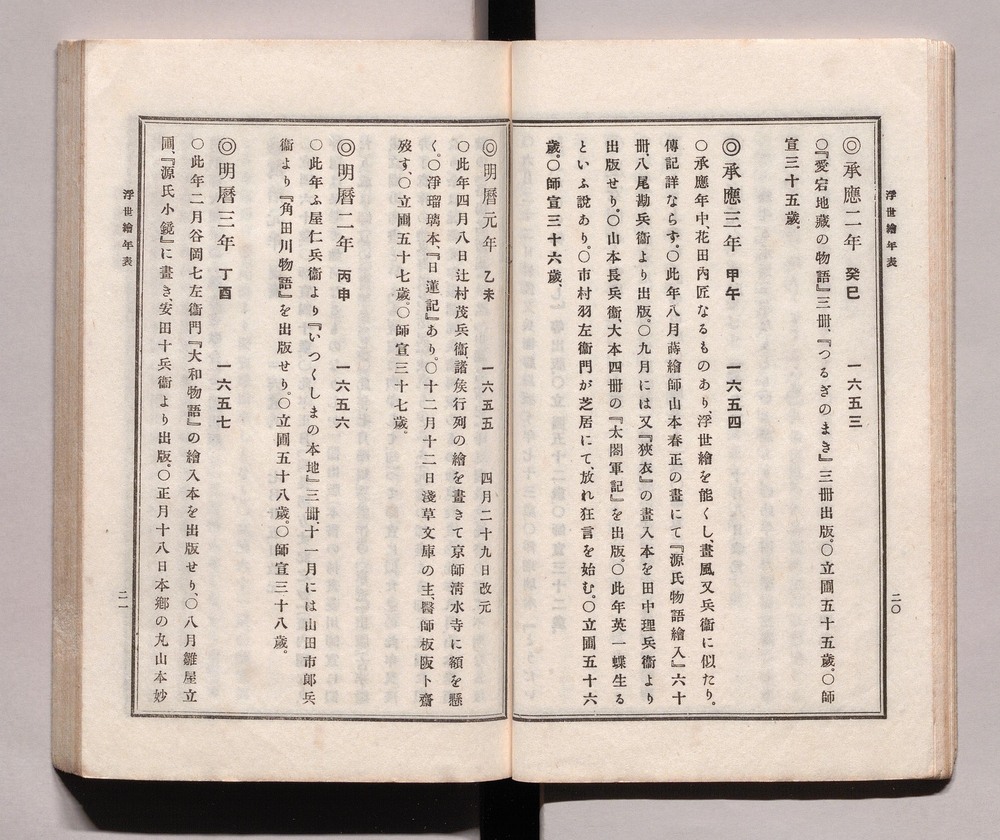 浮世繪年表
二〇
◎承應二年 癸巳 一六五三
〇『愛宕地藏の物語』三冊、『つるぎのまき』三冊出版。〇立圃五十五歲。〇師
宣三十五歲。
◎承應三年 甲午 一六五四
〇承應年中、花田內匠なるものあり、浮世繪を能くし、畫風又兵衞に似たり。
傳記詳ならず。〇此年八月蒔繪師山本春正の畫にて『源氏物語繪入』六十
冊、八尾勘兵衞より出版。〇九月には又『狹衣』の畫入本を田中理兵衞より
出版せり。〇山本長兵衞、大本四冊の『太閤軍記』を出版。〇此年英一蝶生る
といふ說あり。〇市村羽左衞門が芝居にて、放れ狂言を始む。〇立圃五十六
歲。〇師宣三十六歲、
◎明曆元年 乙未 一六五五 四月二十九日改元
〇此年四月八日辻村茂兵衞、諸矦行列の繪を畫きて京師淸水寺に額を懸
く。〇淨瑠璃本、『日蓮記』あり。〇十二月十二日淺草文庫の主、醫師板阪卜齋
歿す、〇立圃五十七歲。〇師宣三十七歲。
◎明曆二年 丙申 一六五六
〇此年ふ屋仁兵衞より『いつくしまの本地』三冊、十一月には山田市郞兵
衞より『角田川物語』を出版せり。〇立圃五十八歲。〇師宣三十八歲。
◎明曆三年 丁酉 一六五七
〇此年二月谷岡七左衞門『大和物語』の繪入本を出版せり、〇八月雛屋立
圃、『源氏小鏡』に畫き、安田十兵衞より出版。〇正月十八日本鄕の丸山本妙
浮世繪年表
二一